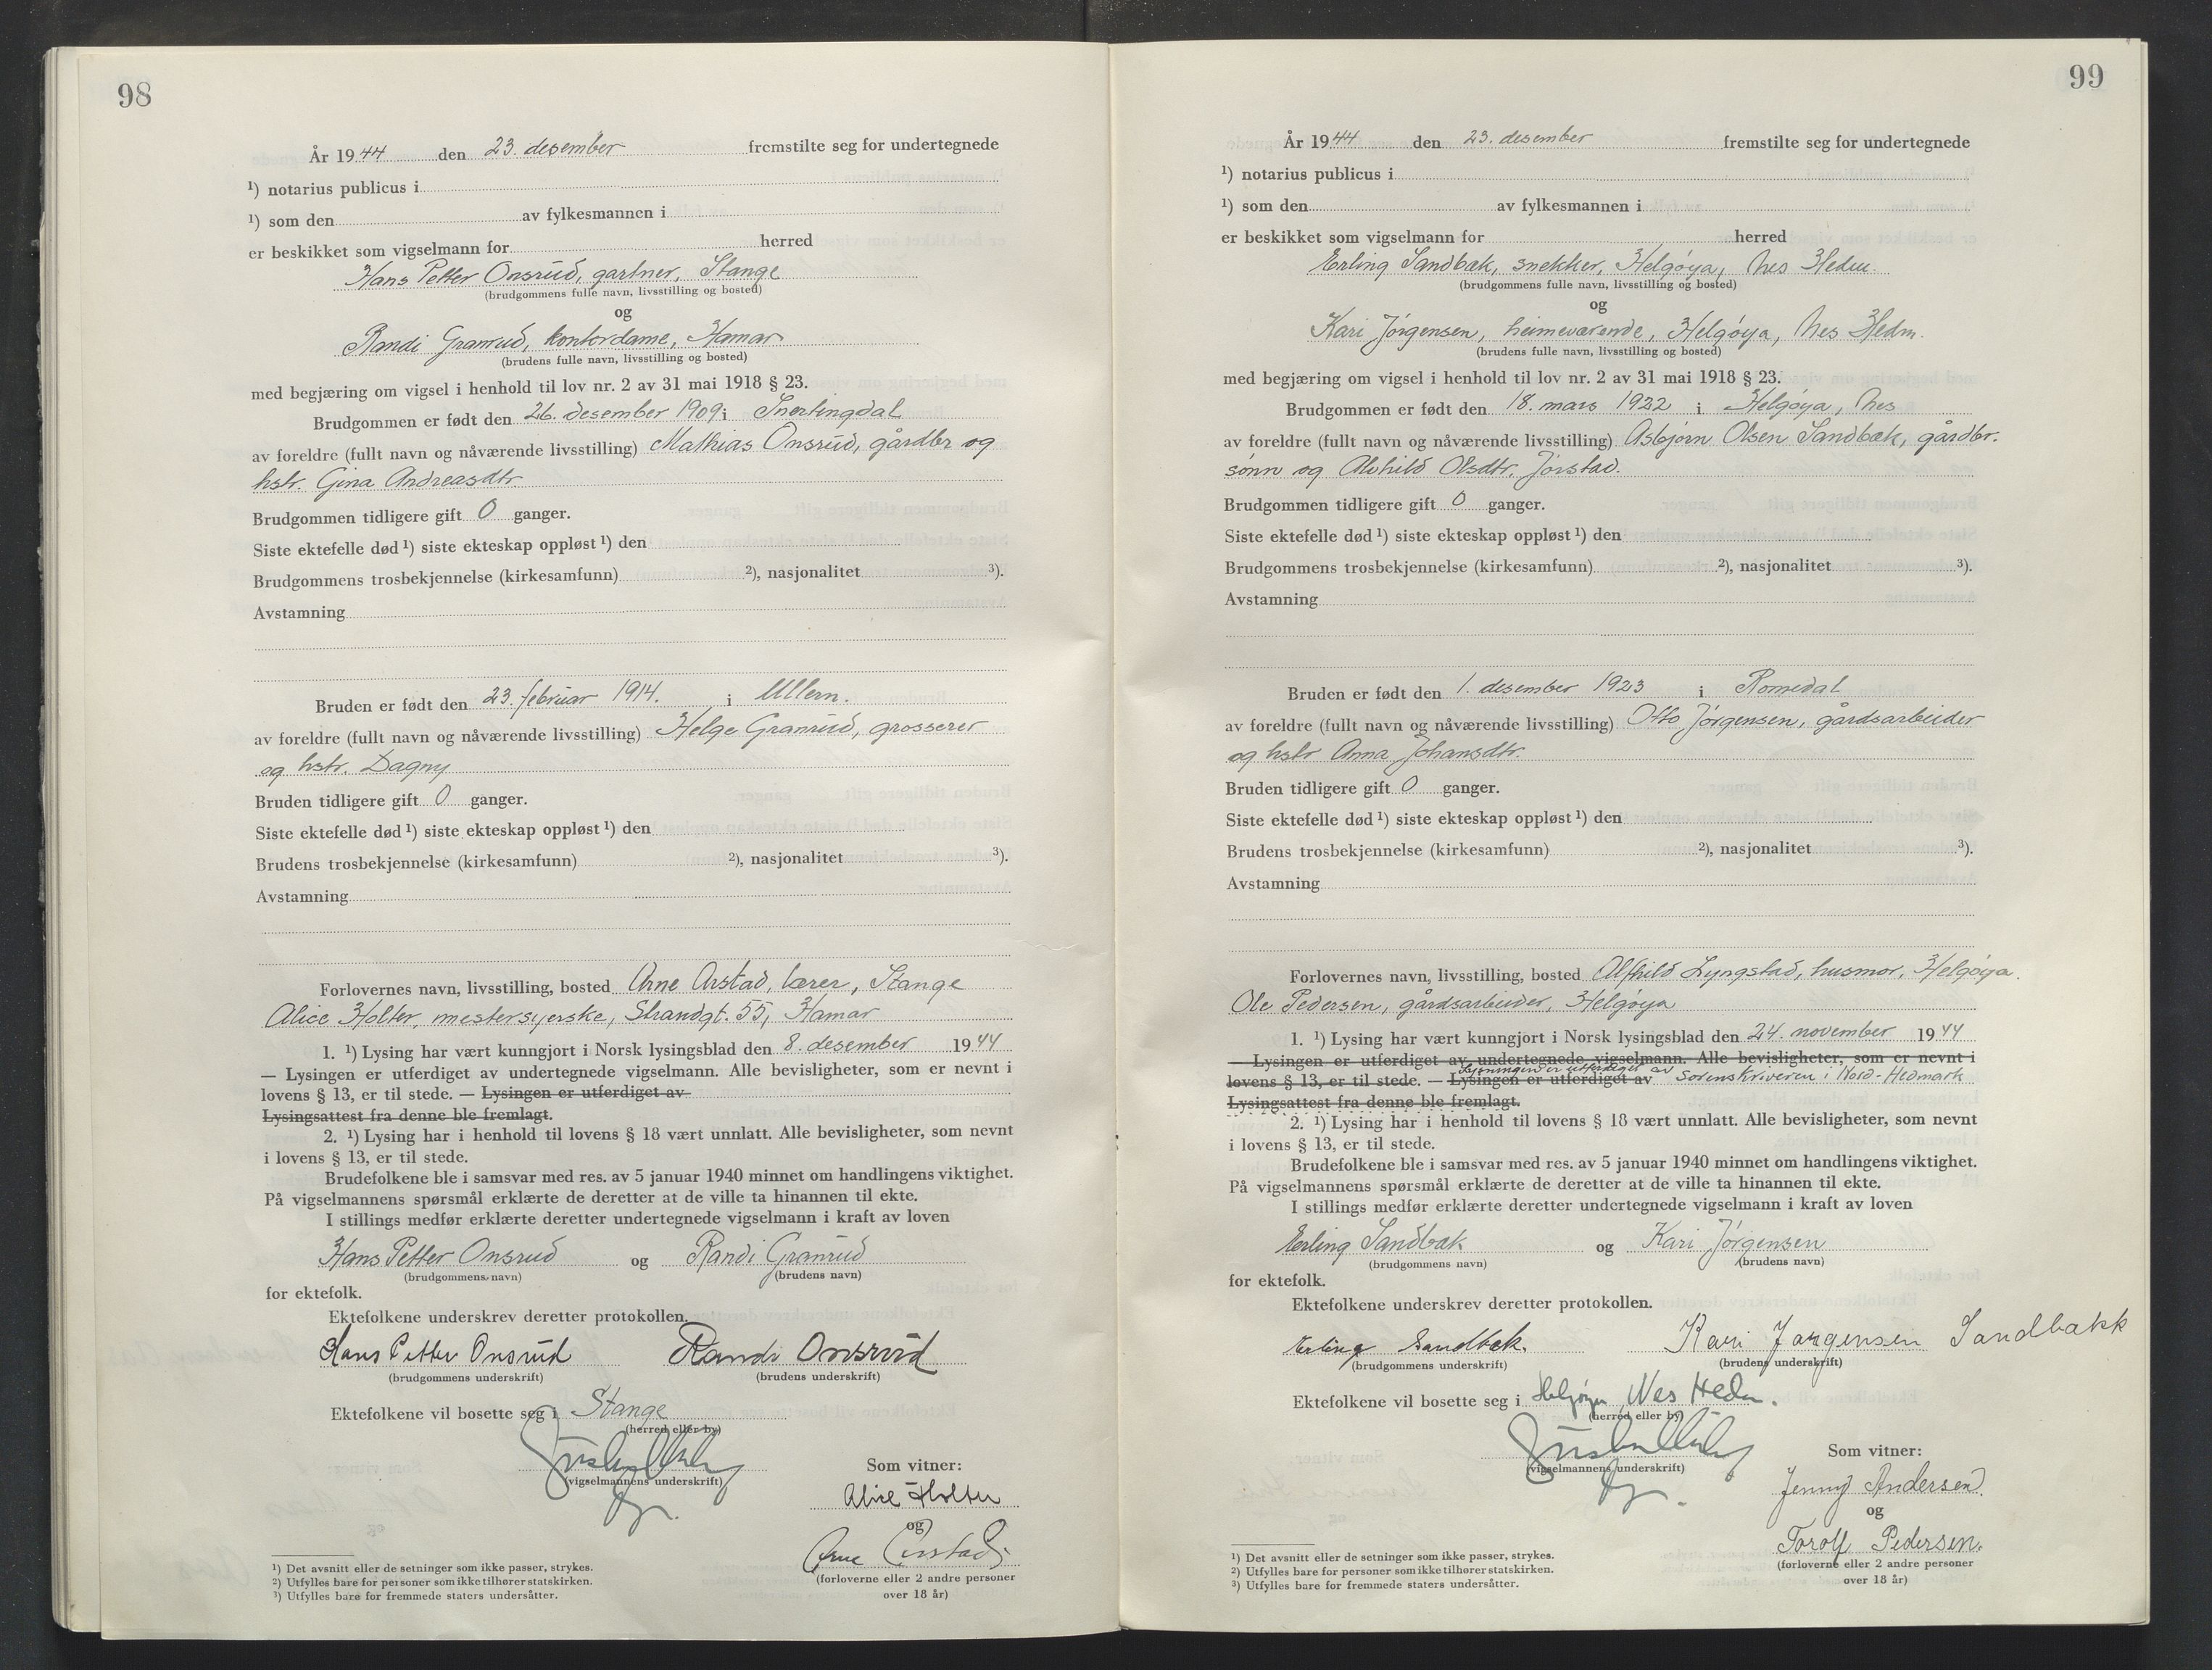 98
År 1944 den 23. desember fremstilte seg for undertegnede
¹) notarius publicus i
¹) som den av fylkesmannen i
er beskikket som vigselmann for herred
Hans Petter Onsrud, gartner, Stange
(brudgommens fulle navn, livsstilling og bosted)
og
Randi Granrud, kontordame, Hamar
(brudens fulle navn, livsstilling og bosted)
med begjæring om vigsel i henhold til lov nr. 2 av 31 mai 1918 § 23.
Brudgommen er født den 26. desember 1909 i Snertingdal
av foreldre (fullt navn og nåværende livsstilling) Mathias Onsrud, gårdbr og
hstr. Gina Andreasdtr.
Brudgommen tidligere gift 0 ganger.
Siste ektefelle død ¹) siste ekteskap oppløst ¹) den
Brudgommens trosbekjennelse (kirkesamfunn) ²), nasjonalitet ³).
Avstamning
Bruden er født den 23. februar 1914. i Ullern.
av foreldre (fullt navn og nåværende livsstilling) Helge Granrud, grosserer
og hstr. Dagny
Bruden tidligere gift 0 ganger.
Siste ektefelle død ¹) siste ekteskap oppløst ¹) den
Brudens trosbekjennelse (kirkesamfunn) ²), nasjonalitet ³).
Avstamning
Forlovernes navn, livsstilling, bosted Arne Arstad, lærer, Stange
Alice Holter, mestersyerske, Strandgt. 55, Hamar
1. ¹) Lysing har vært kunngjort i Norsk lysingsblad den 8. desember 1944
— Lysingen er utferdiget av undertegnede vigselmann. Alle bevisligheter, som er nevnt i
lovens § 13, er til stede. — Lysingen er utferdiget av
Lysingsattest fra denne ble fremlagt.
2. ¹) Lysing har i henhold til lovens § 18 vært unnlatt. Alle bevisligheter, som nevnt
i lovens § 13, er til stede.
Brudefolkene ble i samsvar med res. av 5 januar 1940 minnet om handlingens viktighet.
På vigselmannens spørsmål erklærte de deretter at de ville ta hinannen til ekte.
I stillings medfør erklærte deretter undertegnede vigselmann i kraft av loven
Hans Petter Onsrud og Randi Granrud
(brudgommens navn) (brudens navn)
for ektefolk.
Ektefolkene underskrev deretter protokollen.
Hans Petter Onsrud Randi Onsrud
(brudgommens underskrift) (brudens underskrift)
Ektefolkene vil bosette seg i Stange
(herred eller by)
(vigselmannens underskrift)
Som vitner:
Alice Holter
og
Arne Arstad
(forloverne eller 2 andre personer
over 18 år)
¹) Det avsnitt eller de setninger som ikke passer, strykes.
²) Utfylles bare for personer som ikke tilhører statskirken.
³) Utfylles bare for fremmede staters undersåtter.
99
År 1944 den 23. desember fremstilte seg for undertegnede
¹) notarius publicus i
¹) som den av fylkesmannen i
er beskikket som vigselmann for herred
Erling Sandbæk, snekker, Helgøya, Nes Hedm.
(brudgommens fulle navn, livsstilling og bosted)
og
Kari Jørgensen, heimeværende, Helgøya, Nes Hedm.
(brudens fulle navn, livsstilling og bosted)
med begjæring om vigsel i henhold til lov nr. 2 av 31 mai 1918 § 23.
Brudgommen er født den 18. mars 1922 i Helgøya, Nes
av foreldre (fullt navn og nåværende livsstilling) Asbjørn Olsen Sandbæk, gårdbr.
sønn og Alvhild Olsdtr. Jørstad.
Brudgommen tidligere gift 0 ganger.
Siste ektefelle død ¹) siste ekteskap oppløst ¹) den
Brudgommens trosbekjennelse (kirkesamfunn) ²), nasjonalitet ³).
Avstamning
Bruden er født den 1. desember 1923 i Romedal
av foreldre (fullt navn og nåværende livsstilling) Otto Jørgensen, gårdsarbeider
og hstr Anna Johansdtr.
Bruden tidligere gift 0 ganger.
Siste ektefelle død ¹) siste ekteskap oppløst ¹) den
Brudens trosbekjennelse (kirkesamfunn) ²), nasjonalitet ³).
Avstamning
Forlovernes navn, livsstilling, bosted Alfhild Lyngstad, husmor, Helgøya.
Ole Pedersen, gårdsarbeider, Helgøya
1. ¹) Lysing har vært kunngjort i Norsk lysingsblad den 24. november 1944
— Lysingen er utferdiget av undertegnede vigselmann. Alle bevisligheter, som er nevnt i
Lysningen er utferdiget av
lovens § 13, er til stede. — Lysingen er utferdiget av Sorenskriveren i Nord-Hedmark
Lysingsattest fra denne ble fremlagt.
2. ¹) Lysing har i henhold til lovens § 18 vært unnlatt. Alle bevisligheter, som nevnt
i lovens § 13, er til stede.
Brudefolkene ble i samsvar med res. av 5 januar 1940 minnet om handlingens viktighet.
På vigselmannens spørsmål erklærte de deretter at de ville ta hinannen til ekte.
I stillings medfør erklærte deretter undertegnede vigselmann i kraft av loven
Erling Sandbæk og Kari Jørgensen
(brudgommens navn) (brudens navn)
for ektefolk.
Ektefolkene underskrev deretter protokollen.
Erling Sandbæk. Kari Jørgensen Sandbakk
(brudgommens underskrift) (brudens underskrift)
Ektefolkene vil bosette seg i Helgøya, Nes Hedm.
(herred eller by)
(vigselmannens underskrift)
Som vitner:
Jenny Andersen.
og
Torolf Pedersen.
(forloverne eller 2 andre personer
over 18 år)
¹) Det avsnitt eller de setninger som ikke passer, strykes.
²) Utfylles bare for personer som ikke tilhører statskirken.
³) Utfylles bare for fremmede staters undersåtter.